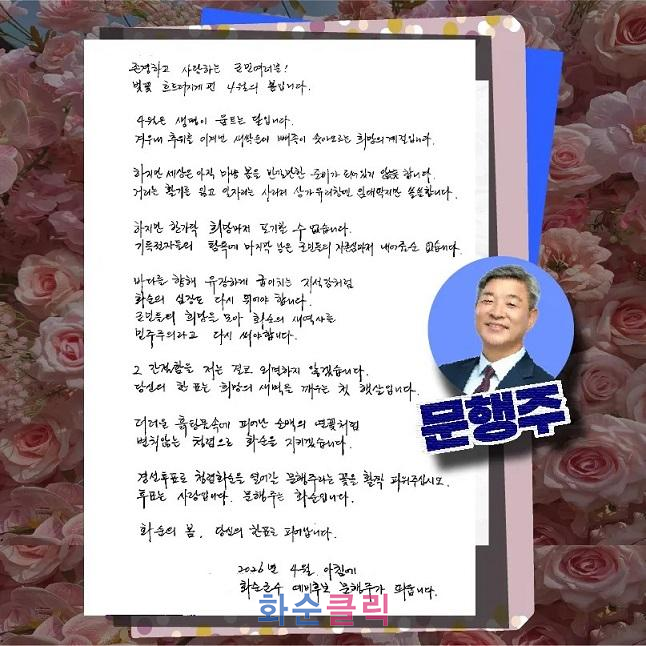 존경하고 사랑하는 군민여러분!
벚꽃 흐드러지게 핀 4월의 봄입니다.
4월은 생명이 움트는 달입니다.
겨우내 추위를 이겨낸 새싹들이 삐죽이 솟아오르는 희망의 계절입니다.
하지만 세상은 아직 마냥 봄을 만끽할만한 준비가 되어있지 않은듯 합니다.
거리는 활기를 잃고 일자리는 사라져 상가유리창엔 임대딱지만 쓸쓸합니다.
하지만 한가닥 희망마저 포기할 수 없습니다.
기득권자들의 탐욕에 마지막 남은 군민들의 자존심마저 내어줄순 없습니다.
바다를 향해 유장하게 굽이치는 지석강처럼
화순의 심장도 다시 뛰어야 합니다.
군민들의 희망을 모아 화순의 새역사를
민주주의라고 다시 써야합니다.
그 간절함을 저는 결코 외면하지 않겠습니다.
당신의 한 표는 희망의 새벽을 깨우는 첫 햇살입니다.
더러운 흙탕물속에 피어난 순백의 연꽃처럼
변치않는 청렴으로 화순을 지키겠습니다.
경선투표로 청렴화순을 열어갈 문행주라는 꽃을 활짝 피워주십시오.
투표는 사랑입니다. 문행주는 화순입니다.
화순의 봄, 당신의 한표로 피어납니다.
2026년 4월 아침에
화순군수 예비후보 문행주가 띄웁니다.
문행주
화순클릭